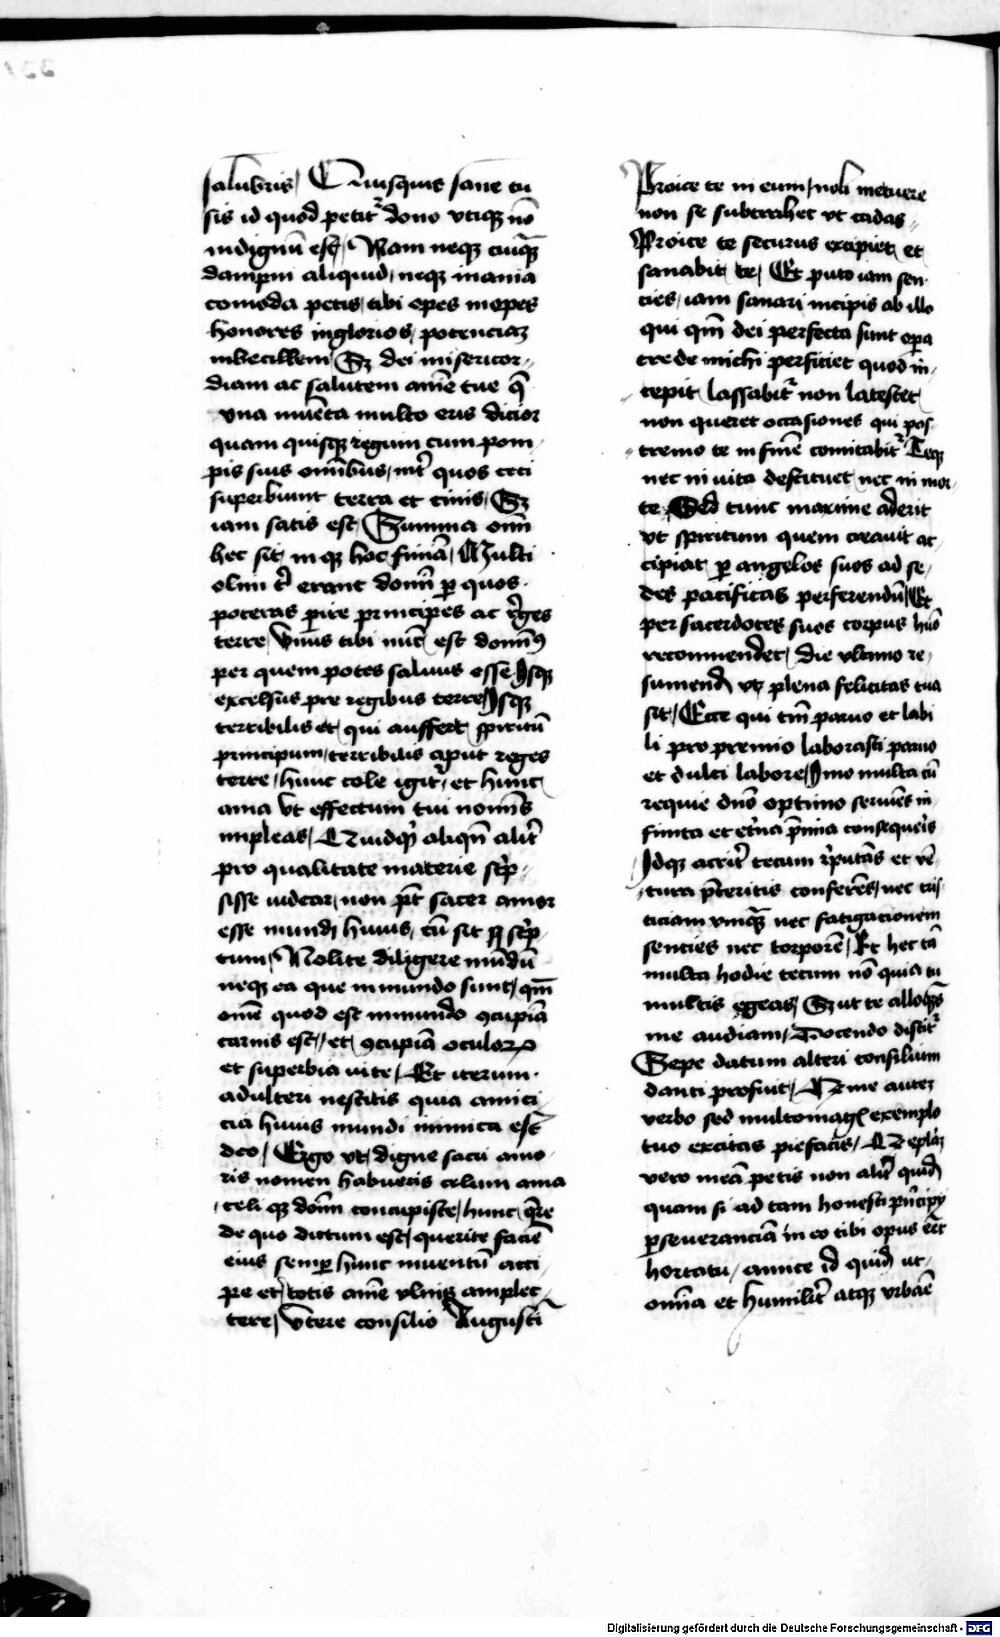 salubris / Cuiusquis sane tu
sis id quod petitr dono vtiqȝ nō
indignū est / Nam neqȝ cuiqȝ
dampni aliquid / neqȝ inania
comoda petis / tibi opes inopes
honores inglorios / potenciaȝ
imbecillem / Sȝ dei misericor-
diam ac salutem anīe tue q̄
vna inuēta multo eris dicior
quam quisqȝ regum cum pom-
pis suis omībus / int̄ quos ceci
superbiunt terra et cinis / Sȝ
iam satis est / Summa omī
hec sit / in qȝ hoc finiā / Multi
olim t̄ erant domī per quos
poteras perire principes ac r̄ges
terre / Vnus tibi nūc est domī9
per quem potes saluus esse Isqȝ
excelsus pre regibus terre Isqȝ
terribilis et qui auffert spiritū
principum / terribilis aput reges
terre / hunc cole igitr / et hunc
ama Vt effectum tui nomīs
impleas / Quidqd aliqn̄ alit̄
pro qualitate materie scrip-
sisse videar / non pt̄ sacer amor
esse mundi huius / cū sit scrip-
tum / Nolite diligere mūdū
neqȝ ea que in mundo sunt / qm̄
omē quod est in mundo ɔcupiā
carnis est // et ɔcupiā oculoꝝ
et superbia vite / Et iterum
adulteri nescitis quia amici-
cia huius mundi inimica est
deo / Ergo vt digne sacri amo-
ris nomen habueris celum ama
celi qȝ domī concupisce / hunc q̄re
de quo dictum est / querite faciē
eius semper hunc inuentū acci-
pe et totis anīe vlnis amplec-
tere / Vtere consilio Augusti
Proice te in eum / noli metuere
non se subtrahet vt cadas
Proice te securus excipiet et
sanabit te / Et puto iam sen-
cies / iam sanari incipis ab illo
qui qm̄ dei perfecta sunt opera
crede michi perficiet quod in-
cepit lassabitr non latescet
non queret occasiones qui pos-
tremo te in finē comitabitr Teqȝ
nec in vita destituet nec in mor-
te Sed tunc maxime aderit
vt spiritum quem creauit ac-
cipiat per angelos suos ad se-
des pacificas perferendū Et
per sacerdotes suos corpus humo
recommendet / die vltimo re-
sumend vt plena felicitas tua
sit / Ecce qui tm̄ paruo et labi
li pro premio laborasti paruo
et dulci labore Imo multa cū
requie dn̄o optimo seruiēs in-
finita et et̄na p̄mia consequeris
Idqȝ acrit̄ tecum r̄putās et vē-
tura p̄teritis conferēs / nec tris-
ticiam vmqȝ nec fatigacionem
sencies nec torporē / Et hec tā
multa hodie tecum nō quia tu
multis egeas / Sȝ ut te alloqēs
me audiam / Docendo discitr
Sepe datum alteri consilium
danti profuit / Tu me autez
verbo sed multomagꝭ exemplo
tuo excitas pie facis /
vero meā petis non alit̄ quidem
quam si ad tam honesti p̄ncipij
perseueranciā in eo tibi opus erit
hortatu / amice id quidem ut
omīa et humilit̄ atqȝ vrbaē
Digitalisierung gefördert durch die Deutsche Forschungsgemeinschaft - DFG